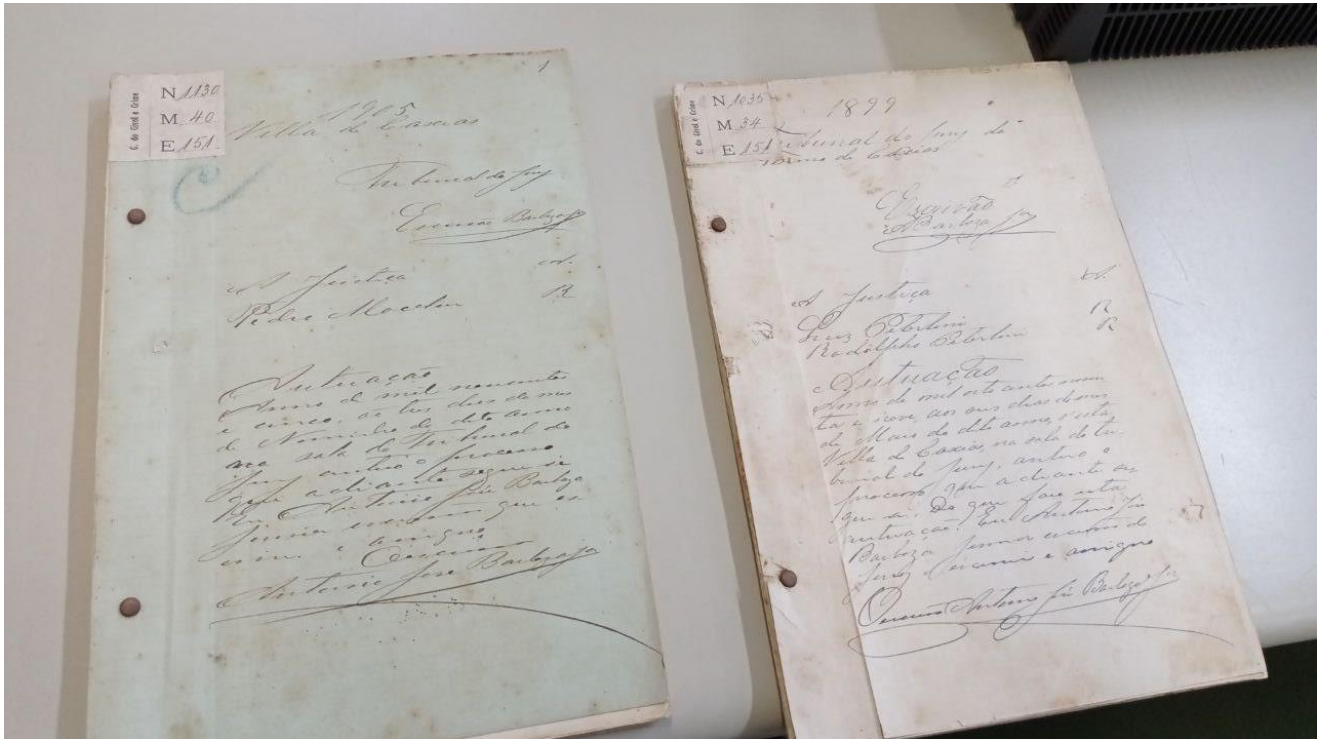 C. do Civel e Crime
N 1130
M 40
E 151
1
1905
Villa de Caxias
Tribunal do Jury
Escrivão Barboza Jor
A Justiça A.
Pedro R
Autuação
Anno de mil novecentos
e cinco, aos tres dias do mez
de Novembro do dito anno
na sala do Tribunal do
Jury autuo o processo
que adiante segue se
Eu Antonio José Barboza
Junior escrivão que es
crevi e assigno
O escrivão
Antonio José Barboza Jor
C. do Civel e Crime
N 1035
M 34
E 151
1899
Tribunal do Jury do
Termo de Caxias
Escrivão
A Barboza Jor
A Justiça A.
Luiz R
Rodolpho R
Autuação
Anno de mil oito centos noven
ta e nove, aos dias do mez
de Maio do dito anno, n'esta
Villa de Caxias, na sala do tri
bunal do Jury, autuo o
processo que adiante se
gue se. Do que faço esta
autuação. Eu Antonio José
Barboza Junior escrivão do
Jury escrevi e assigno
O escrivão Antonio José Barboza Jor